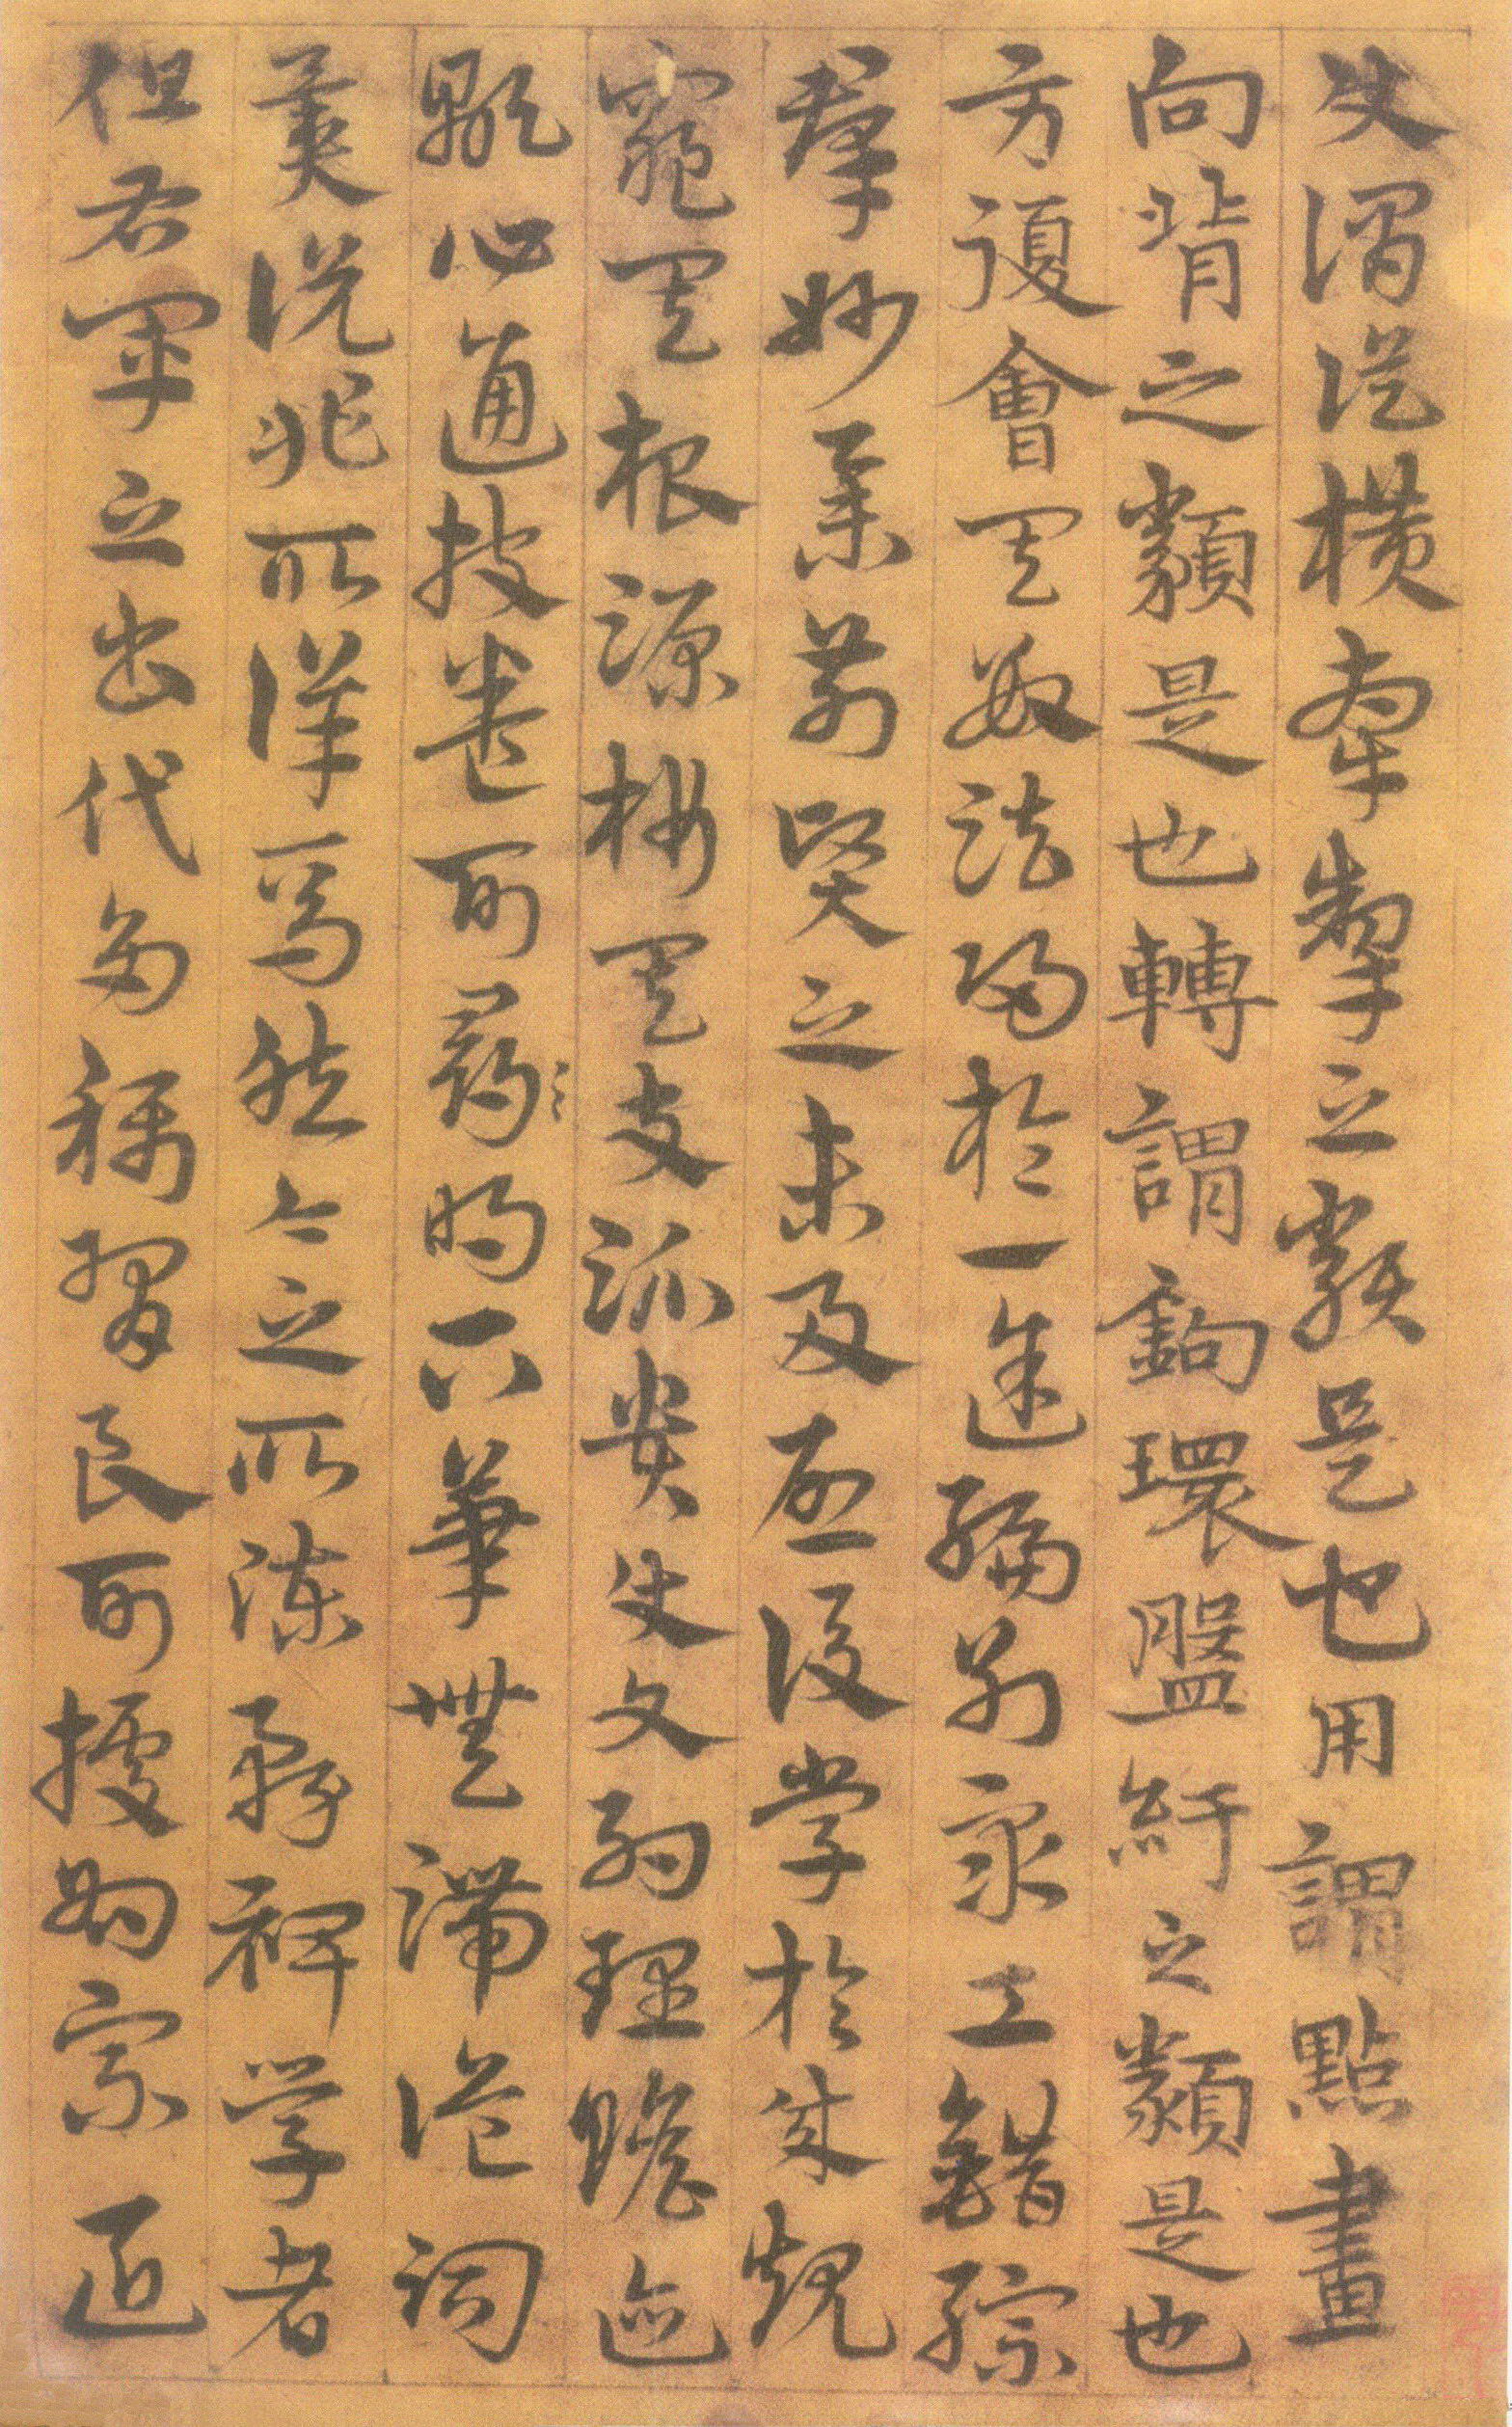 使謂縱橫牽掣之類是也用謂點畫
向背之類是也轉謂鉤環盤紆之類是也
方復會其數法歸於一途編列眾工錯綜
群妙舉前賢之未及啟後學於成規
窮其根源析其支派貴使文約理贍迹
顯心通披卷可尋明下筆無滯詭詞
異說非所詳焉然今之所陳務裨學者
但右軍之書代多稱習良可據為宗匠